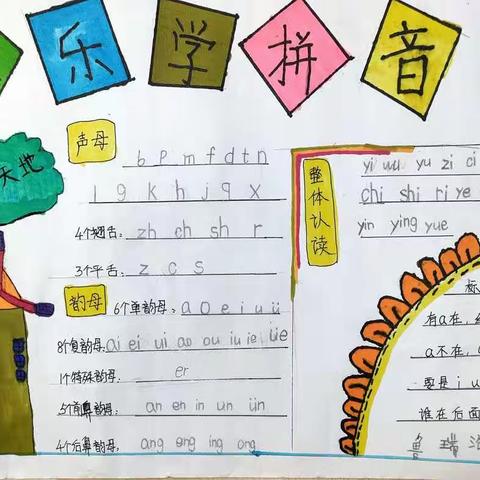 乐 学 拼 音
天地
声母
b p m f d t n
l g k h j q x
4个翘舌: zh ch sh r
3个平舌: z c s
韵母
6个单韵母: a o e i u ü
8个复韵母: ai ei ui ao ou iu ie üe
1个特殊韵母: er
5个前鼻韵母: an en in un ün
4个后鼻韵母: ang eng ing ong
整体认读
yi wu yu zi ci
chi shi ri ye
yin ying yue
标
有a在,
a不在,
要是i u
谁在后面
鲁 瑞